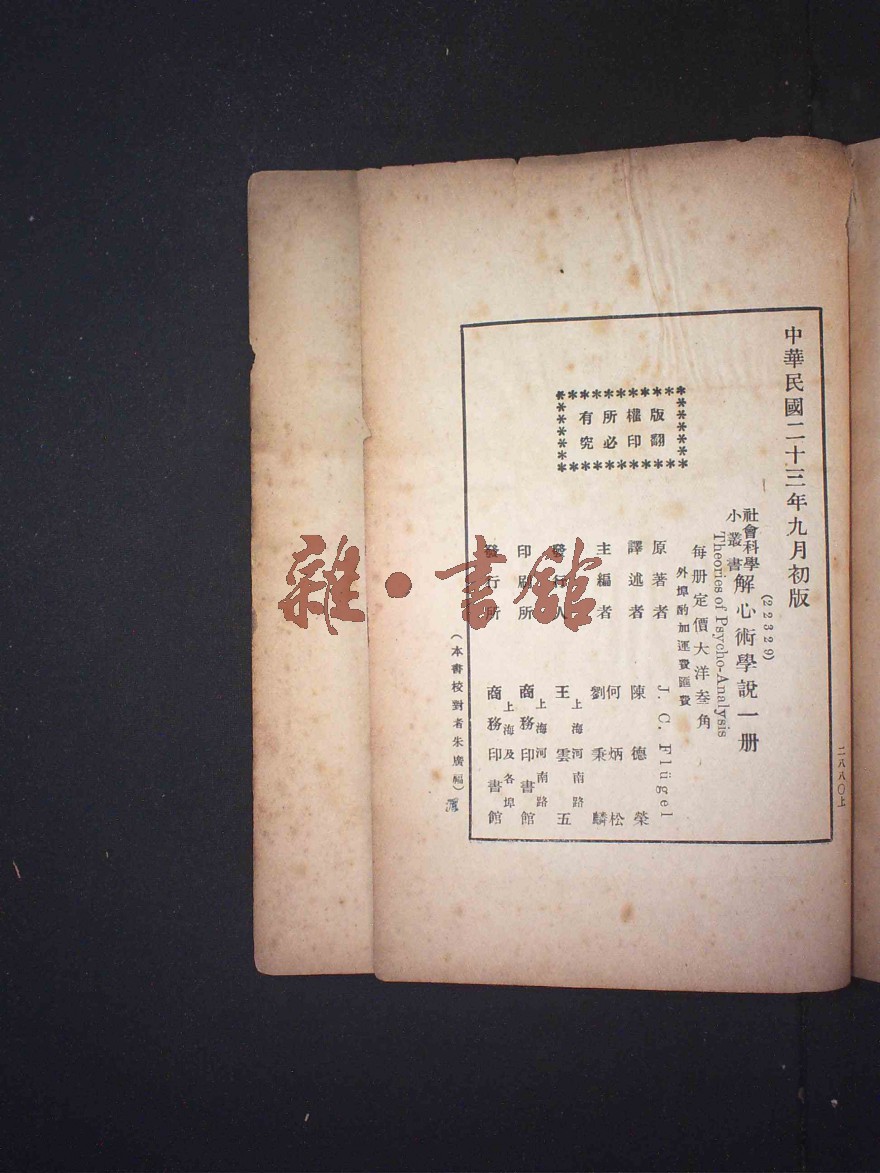 中華民國二十三年九月初版
(22329)
社會科學小叢書 解心術學說一册
Theories of Psycho-Analysis
每册定價大洋叁角
外埠酌加運費匯費
原著者 J. C. Flügel
譯述者 陳德榮
主編者 何炳松 劉秉麟
發行人 王雲五 上海河南路
印刷所 商務印書館 上海河南路
發行所 商務印書館 上海及各埠
版權所有
翻印必究
(本書校對者朱廣福)
二八八〇上
雜·書館